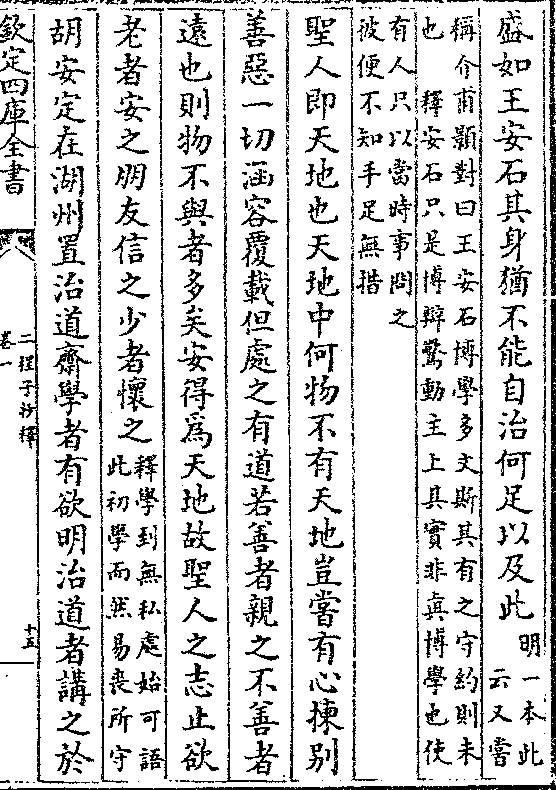 盛如王安石其身猶不能自治何足以及此明一本此
云又嘗
稱介甫顥對曰王安石博學多文斯其有之守約則未
也　釋安石只是博辯驚動主上具實非真博學也使
有人只以當時事問之
彼便不知手足無措
聖人即天地也天地中何物不有天地豈嘗有心揀别
善惡一切涵容覆載但處之有道若善者親之不善者
遠也則物不與者多矣安得爲天地故聖人之志止欲
老者安之朋友信之少者懷之釋學到無私處始可語
此初學而然易喪所守
胡安定在湖州置治道齋學者有欲明治道者講之於
欽定四庫全書
二程子抄釋
卷一
十五